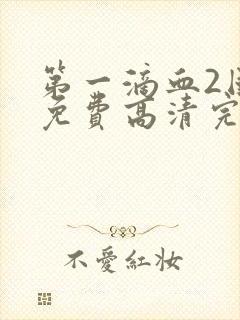 第一滴血2
免費高清完
不愛紅妝